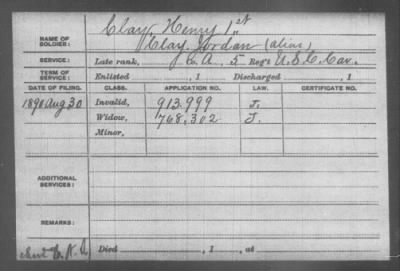 NAME OF SOLDIER: Clay, Henry 1st
Clay, Jordan (alias)
SERVICE: Late rank, Co. A, 5 Reg't U.S.C. Cav.
TERM OF SERVICE: Enlisted , 1 Discharged , 1
DATE OF FILING. CLASS. APPLICATION NO. LAW. CERTIFICATE NO.
1890 Aug 30 Invalid, 913.999 J.
Widow, 768,302 J.
Minor,
ADDITIONAL SERVICES:
REMARKS:
Died , 1 , at